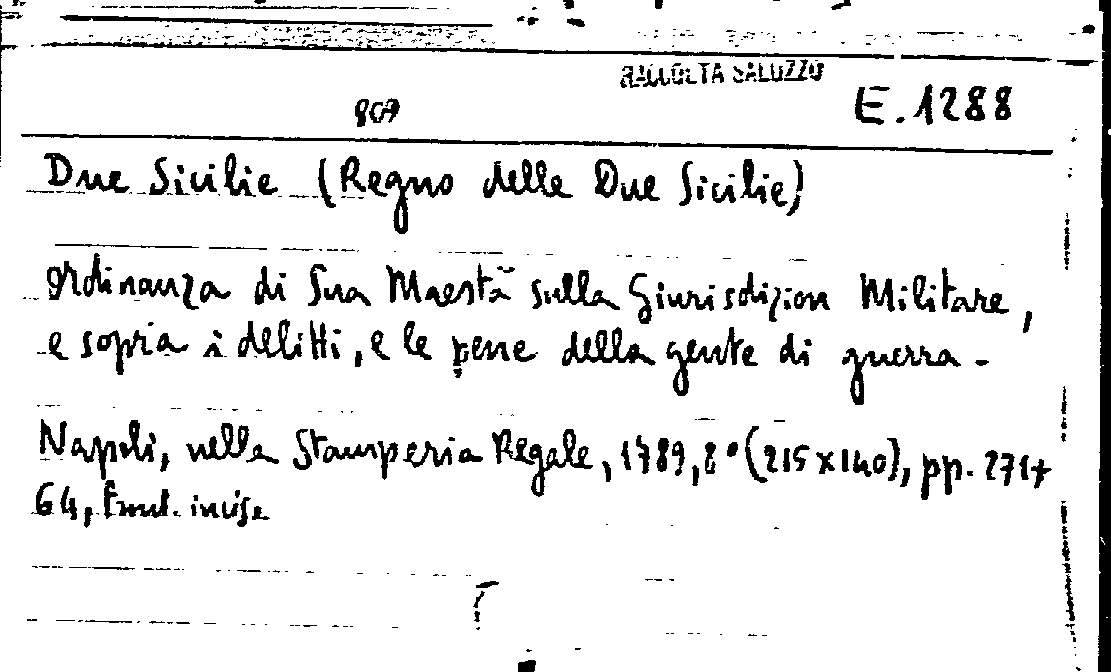 RACCOLTA SALUZZO
809 E. 1288
Due Sicilie (Regno delle Due Sicilie)
Ordinanza di Sua Maestà sulla Giurisdizion Militare,
e sopra i delitti, e le pene della gente di guerra -
Napoli, nella Stamperia Regale, 1789, 8° (215 x 140), pp. 271 +
64, front. incise